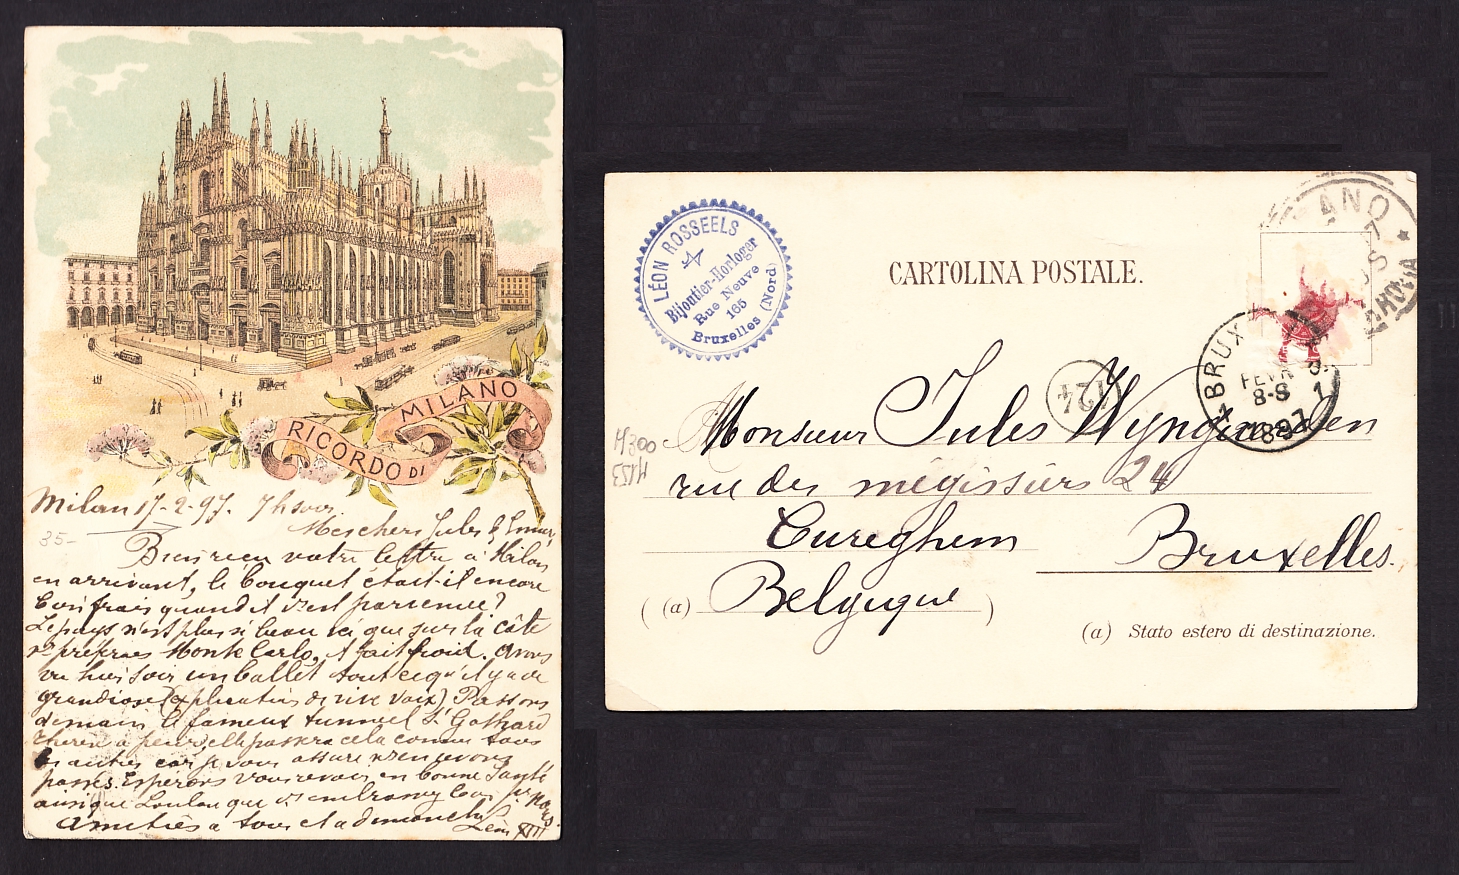 RICORDO DI
MILANO
Milan 17-2-97. 7h soir
Mes chers Jules &
35-
Bien reçu votre lettre à Milan
en arrivant, le bouquet était-il encore
bien frais quand il s'est parvenue?
Le pays n'est plus si beau ici que sur la côte
préferais Monte Carlo, il fait froid. Avons
vu hier soir un ballet tout ce qu'il y a de
grandiose (explication de vive voix) Passons
demain le fameux tunnel St Gothard
a peur, elle passera cela comme tous
les autres car je vous assure
passés. Espérons vous revoir en bonne santé
ainsi que Loulou que
Amitiés a tous et a
Léon XIII
LÉON ROSSEELS
Bijoutier-Horloger
Rue Neuve
165
Bruxelles (Nord)
CARTOLINA POSTALE.
BRUX
FEVR
8-S
1897
124
Monsieur Jules Wyngaerden
4300
4153
rue des mégissiers 24
Cureghem Bruxelles.
(a) Belgique
(a) Stato estero di destinazione.